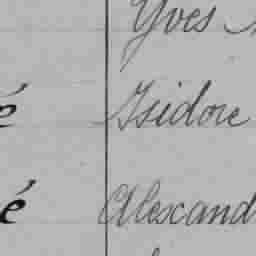 Yves
é Isidore
é Alexand